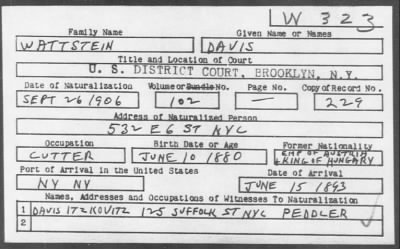 W 323
Family Name Given Name or Names
WATTSTEIN DAVIS
Title and Location of Court
U. S. DISTRICT COURT, BROOKLYN, N.Y.
Date of Naturalization Volume or Bundle No. Page No. Copy of Record No.
SEPT 26 1906 102 — 229
Address of Naturalized Person
532 E 6 ST NYC
Occupation Birth Date or Age Former Nationality
CUTTER JUNE 10 1880 EMP OF AUSTRIA
& KING OF HUNGARY
Port of Arrival in the United States Date of Arrival
NY NY JUNE 15 1893
Names, Addresses and Occupations of Witnesses To Naturalization
1 DAVIS ITZKOVITZ 125 SUFFOLK ST NYC PEDDLER
2